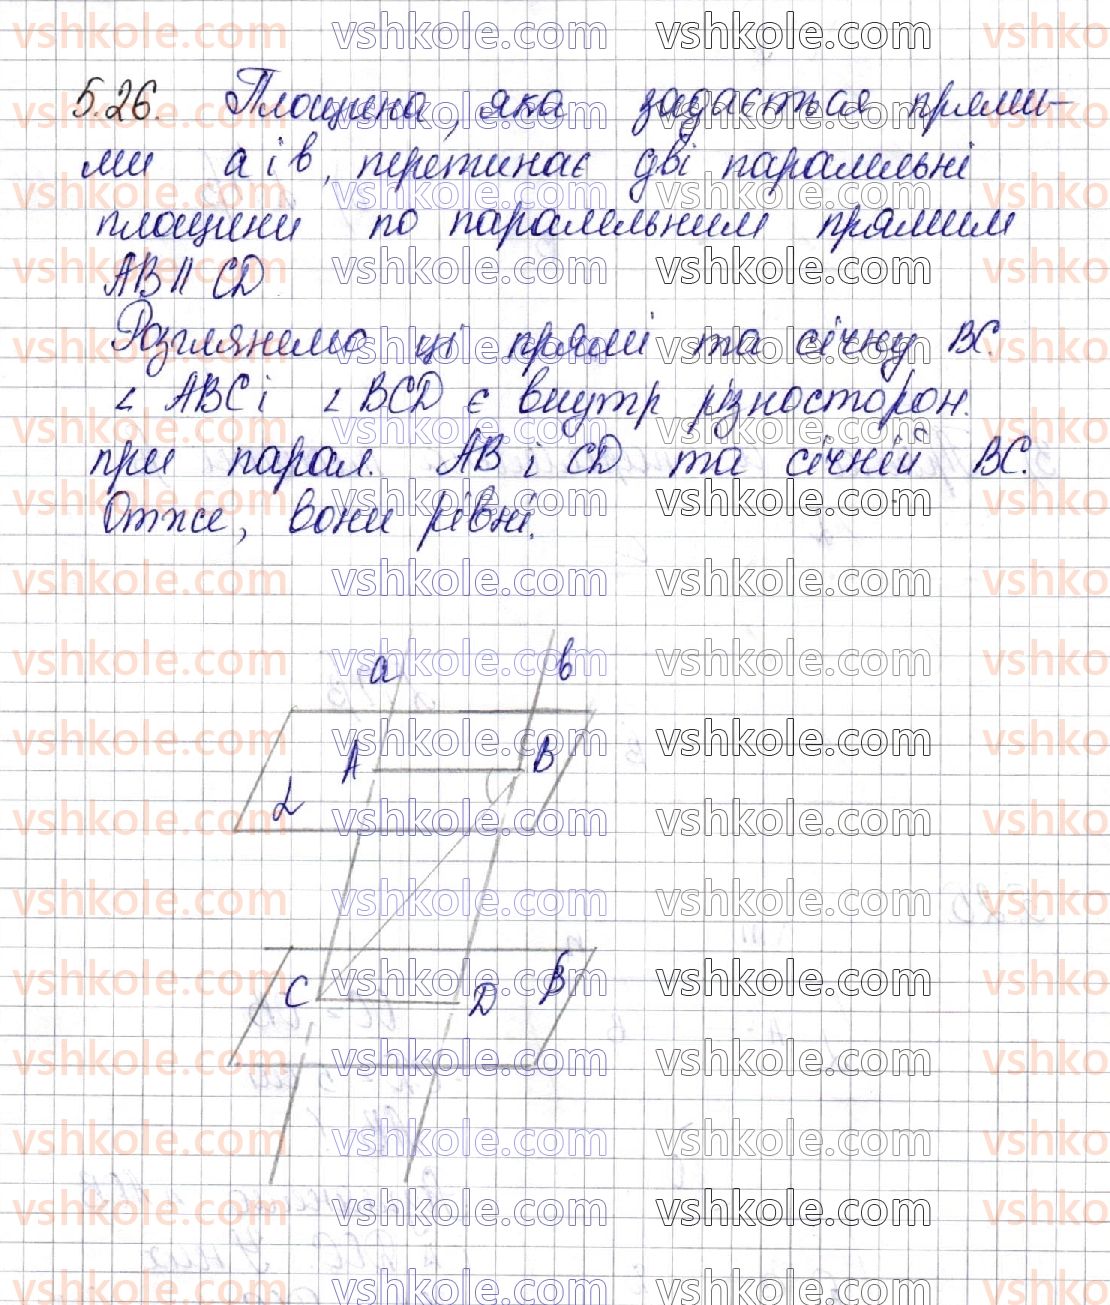 5.26. Площина, яка задається прями-
ми а і в, перетинає дві паралельні
площини по паралельним прямим
AB || CD
Розглянемо ці прямі та січну BC.
∠ ABC і ∠ BCD є внутр різносторон.
при парал. AB і CD та січній BC.
Отже, вони рівні.
a в
A B
α
C D β
vshkole.com